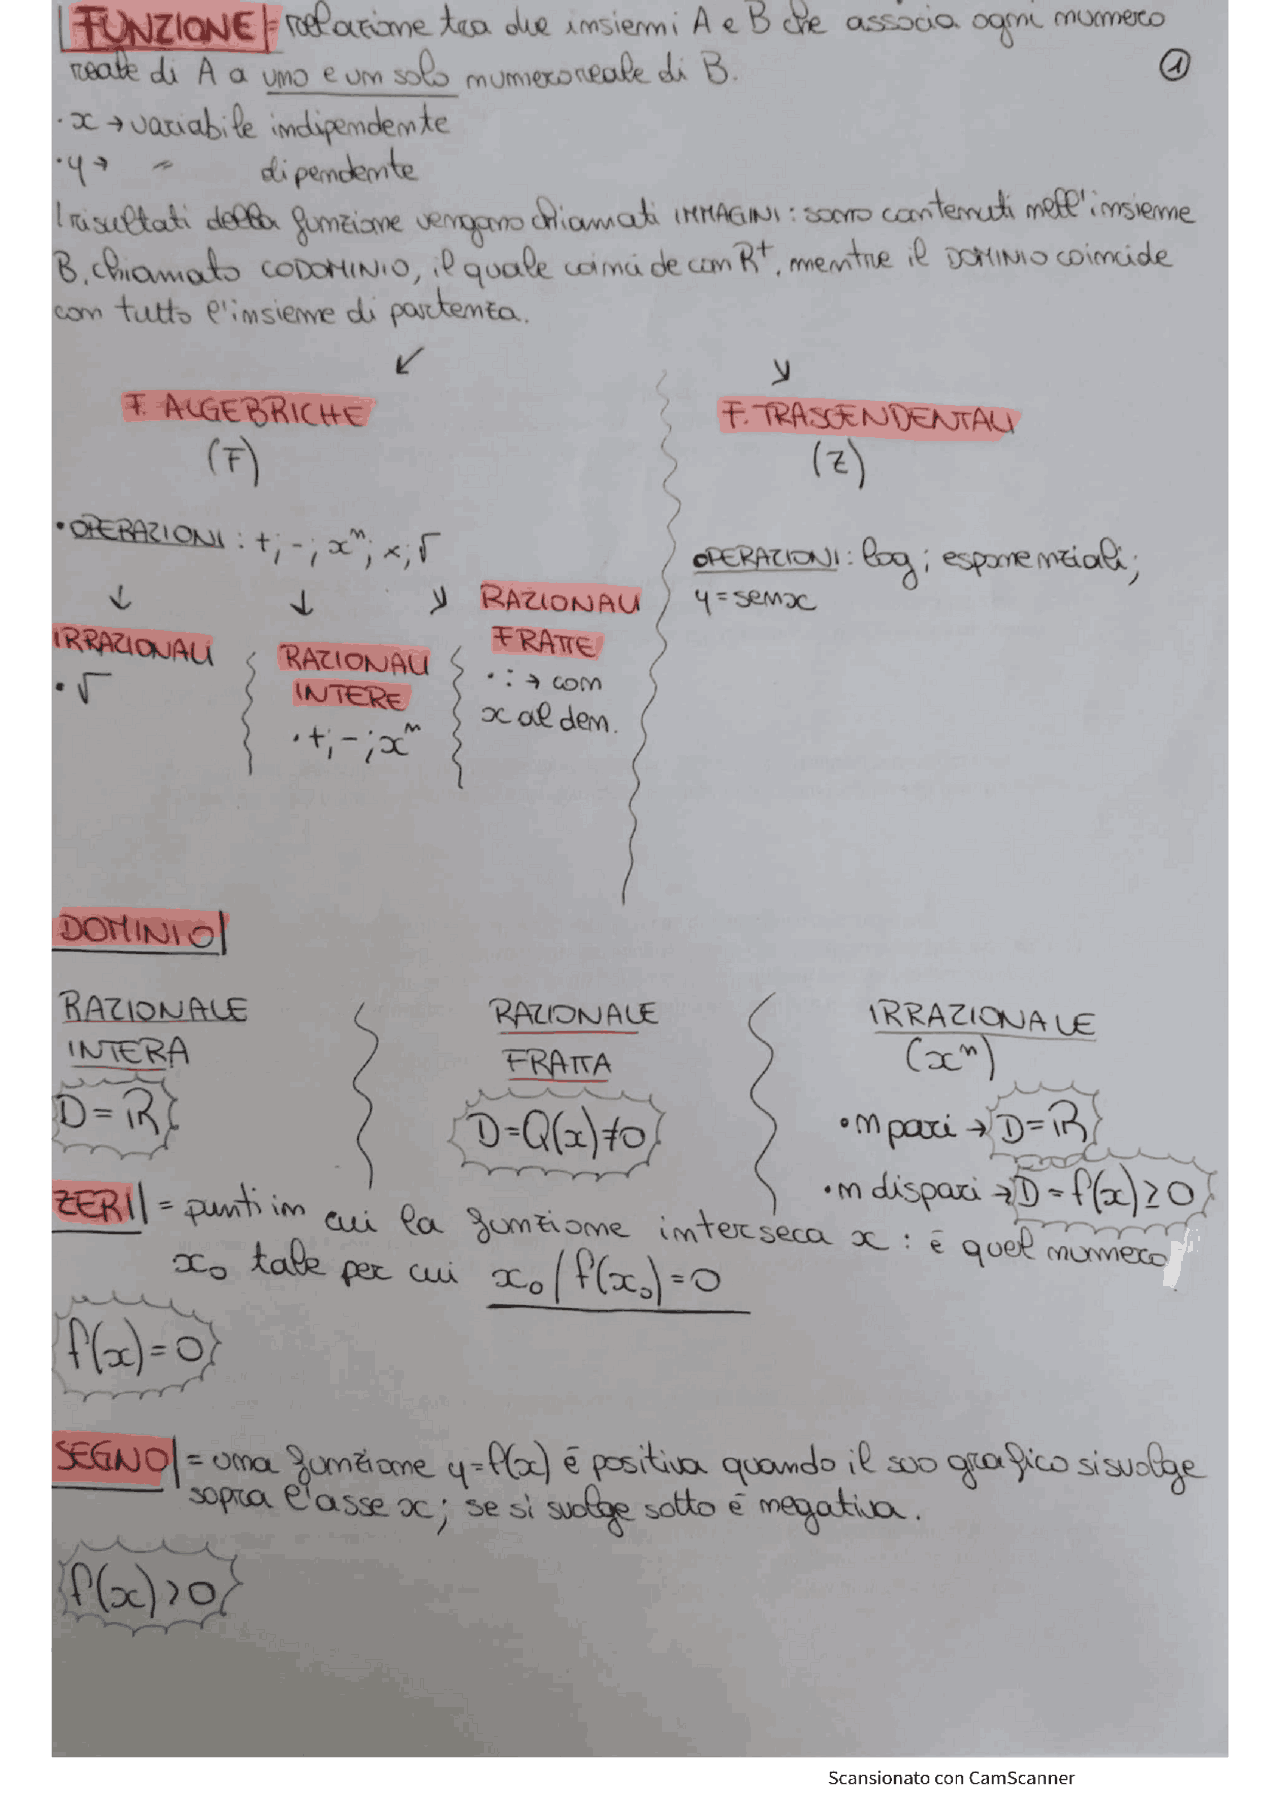 FUNZIONE = relazione tra due insiemi A e B che associa ogni numero
reale di A a uno e un solo numero reale di B.
1
· x → variabile indipendente
· y → " dipendente
I risultati della funzione vengono chiamati IMMAGINI: sono contenuti nell'insieme
B, chiamato CODOMINIO, il quale coincide con R⁺, mentre il DOMINIO coincide
con tutto l'insieme di partenza.
↙ ↘
F. ALGEBRICHE
(F)
• OPERAZIONI: +; -; xⁿ; ×; √
↓ ↓ ↘
IRRAZIONALI
• √
RAZIONALI
INTERE
• +; -; xⁿ
RAZIONALI
FRATTE
• : → con
x al den.
F. TRASCENDENTALI
(Z)
OPERAZIONI: log; esponenziali;
y = senx
DOMINIO
RAZIONALE
INTERA
D = ℝ
RAZIONALE
FRATTA
D = Q(x) ≠ 0
IRRAZIONALE
(xⁿ)
• n pari → D = ℝ
• n dispari → D = f(x) ≥ 0
ZERI = punti in cui la funzione interseca x: è quel numero
x₀ tale per cui x₀ / f(x₀) = 0
f(x) = 0
SEGNO = una funzione y = f(x) è positiva quando il suo grafico si svolge
sopra l'asse x; se si svolge sotto è negativa.
f(x) > 0
Scansionato con CamScanner